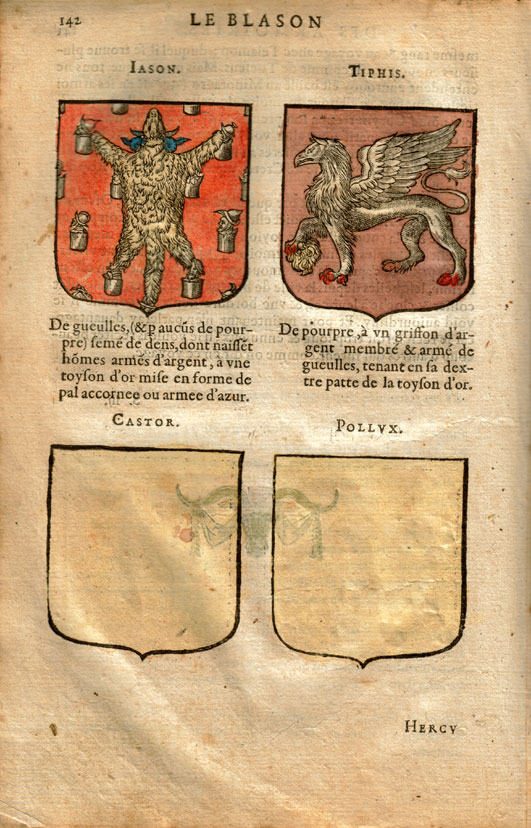 142
LE BLASON
IASON.
TIPHIS.
De gueulles, (& p aucūs de pour-
pre) semé de dens, dont naissēt
hōmes armés d'argent, à vne
toyson d'or mise en forme de
pal accornee ou armee d'azur.
De pourpre, à vn griffon d'ar-
gent membré & armé de
gueulles, tenant en sa dex-
tre patte de la toyson d'or.
CASTOR.
POLLVX.
HERCV